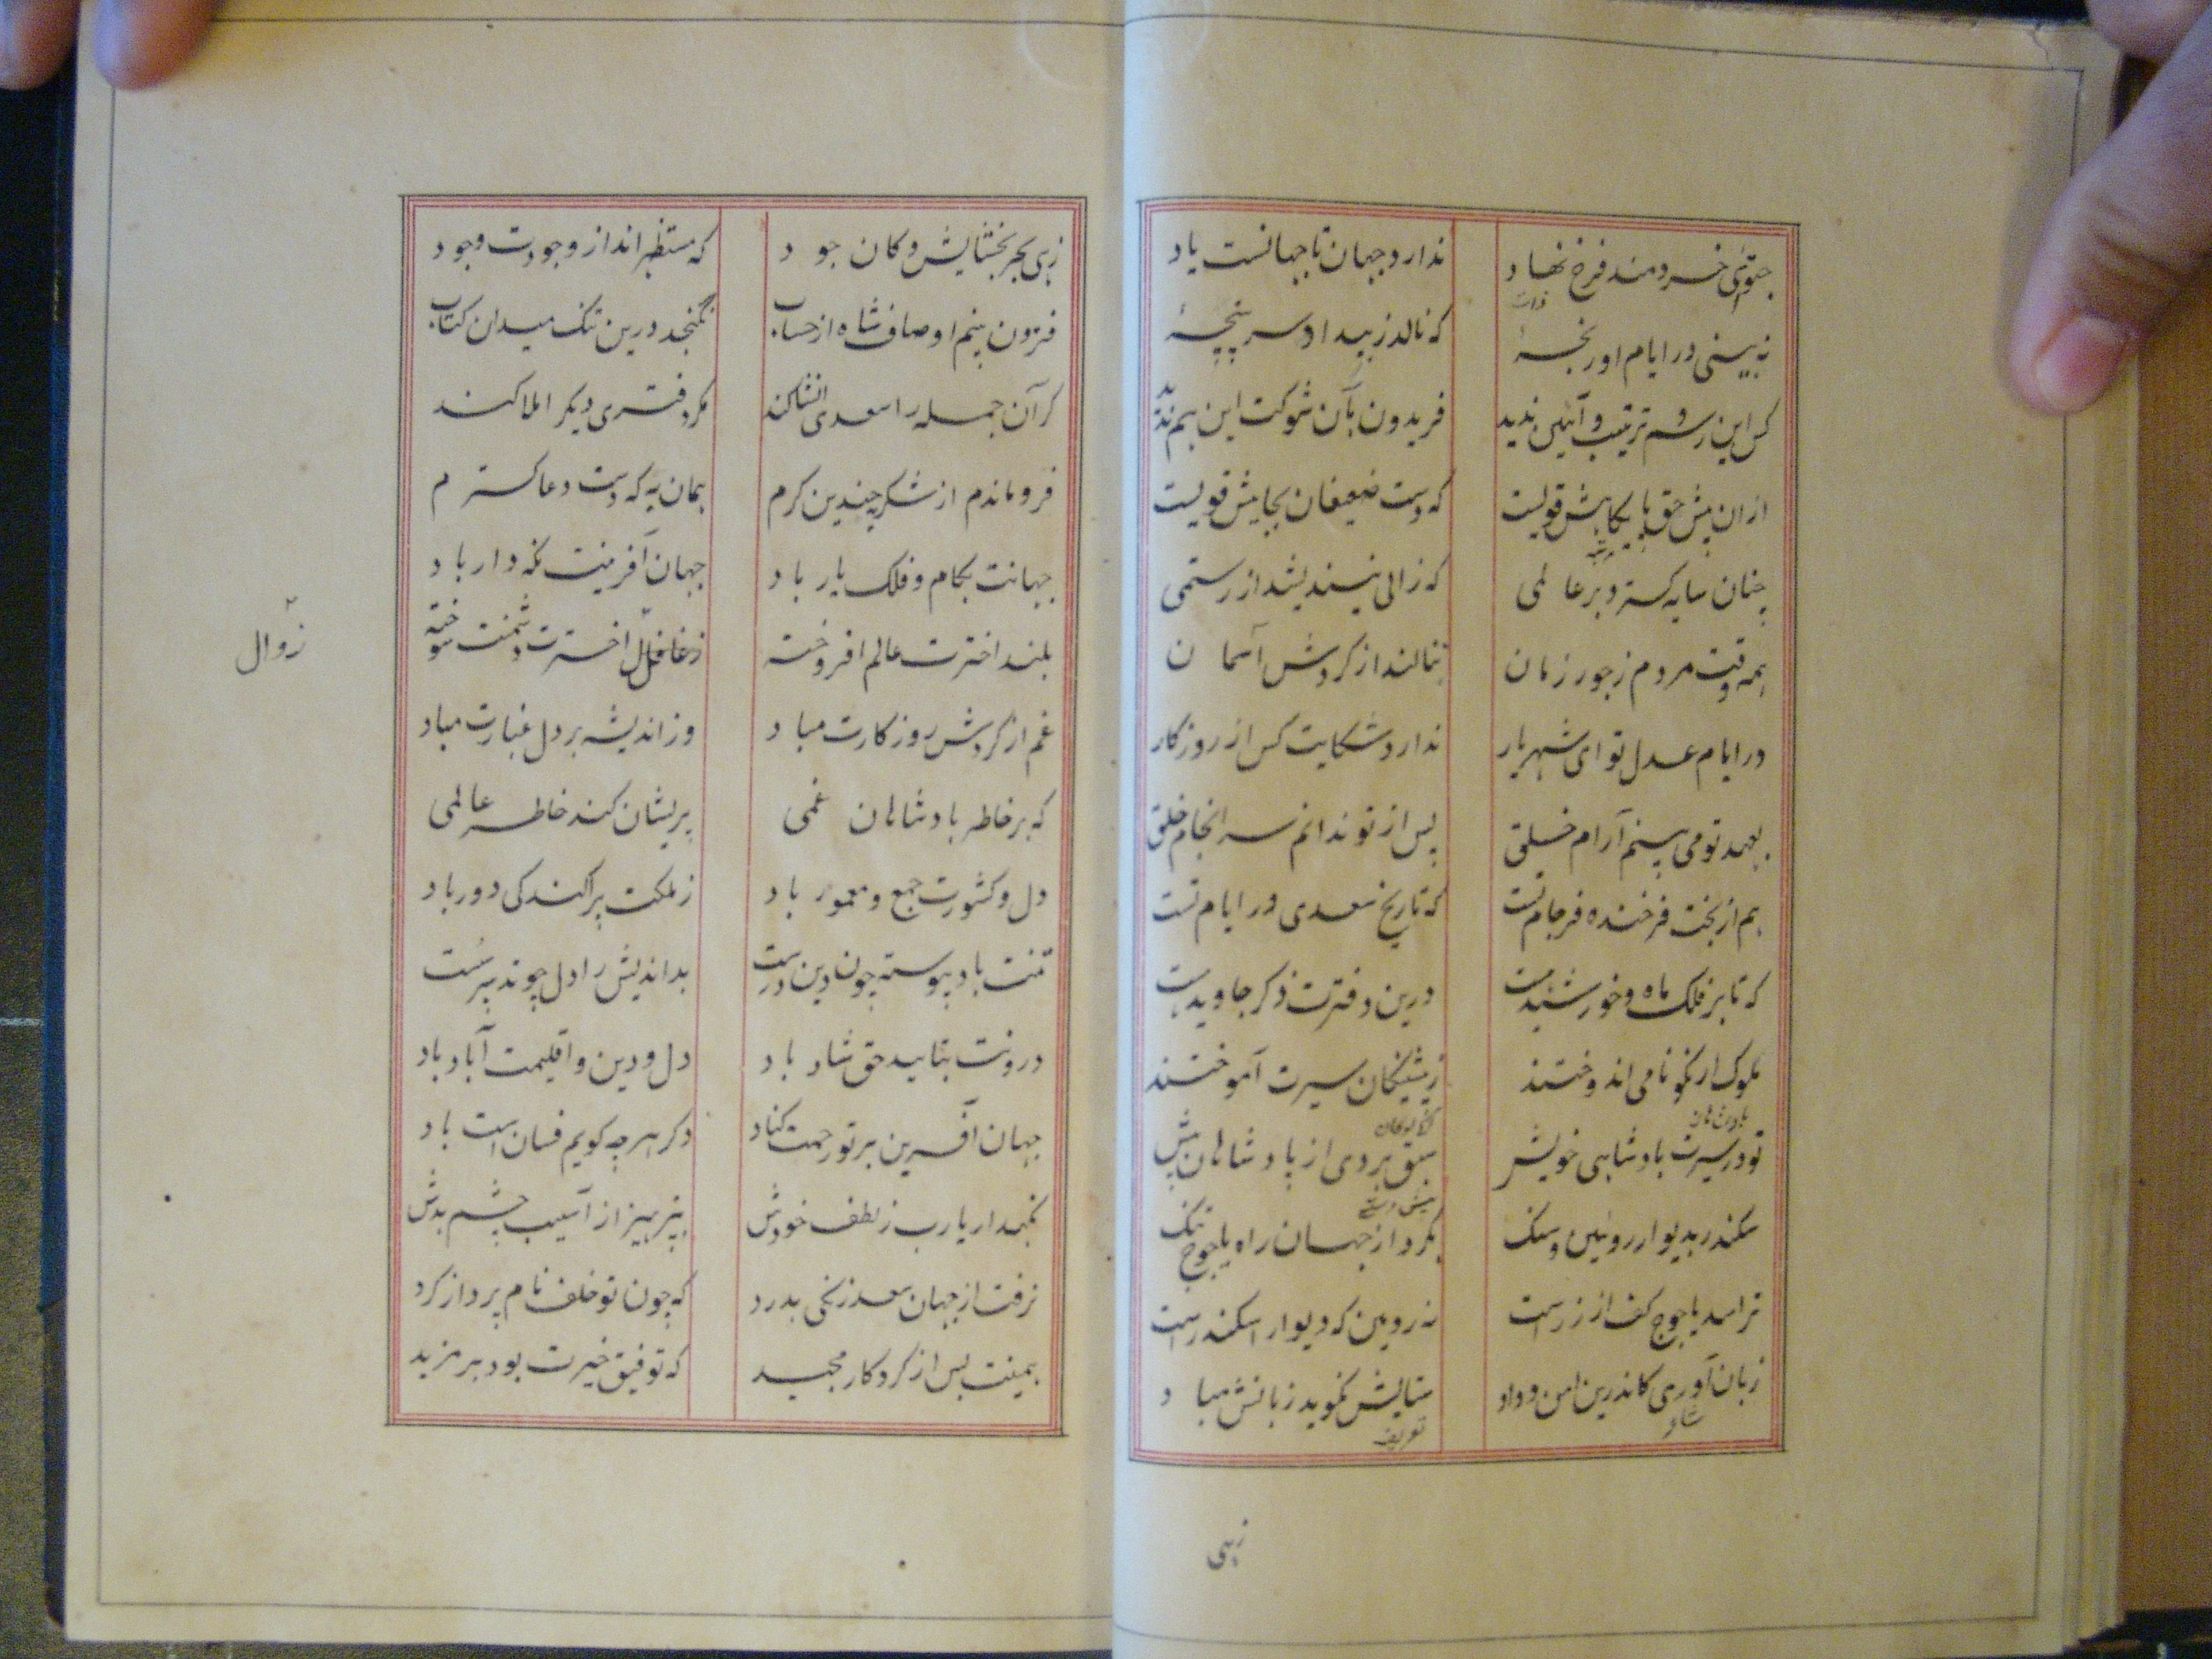 چنوئی خردمند فرخ نهاد ندارد جهان تا جهانست یاد
ذات
نه بینی در ایام او رنجهٔ که نالد ز بیداد سر پنجهٔ
کس این رسم و ترتیب و آئین ندید فریدون بآن شوکت این هم ندید
ازان پیش حق پایگاهش قویست که دست ضعیفان بجاهش قویست
مرتبه
چنان سایه گسترد بر عالمی که زالی نیندیشد از رستمی
همه وقت مردم ز جور زمان بنالند از گردش آسمان
در ایام عدل تو ای شهریار ندارد شکایت کس از روزگار
بعهد تو می بینم آرام خلق پس از تو ندانم سرانجام خلق
هم از بخت فرخنده فرجام تست که تاریخ سعدی در ایام تست
که تا بر فلک ماه و خورشید هست درین دفترت ذکر جاوید هست
ملوک ار نکو نامی اندوختند ز پیشینگان سیرت آموختند
بادشاهان
تو در سیرت بادشاهی خویش سبق بردی از پادشاهان پیش
سکندر بدیوار روئین و سنگ بکرد از جهان راه یاجوج تنگ
ترا سد یاجوج کفر از زرست نه روئین که دیوار اسکندرست
زبان آوری کاندرین امن و داد سپاست نگوید زبانش مباد
شاعر تعریف
زهی
زهی بحر بخشایش و کان جود که مستظهرانداز وجودت وجود
فزون بینم اوصاف شاه از حساب نگنجد درین تنگ میدان کتاب
گر آن جمله را سعدی انشا کند مگر دفتری دیگر املا کند
فرو ماندم از شکر چندین کرم همان به که دست دعا گسترم
جهانت بکام و فلک یار باد جهان آفرینت نگهدار باد
بلند اخترت عالم افروخته زوال اختر دشمنت سوخته
زوال
غم از گردش روزگارت مباد وز اندیشه بر دل غبارت مباد
که بر خاطر بادشاهان غمی پریشان کند خاطر عالمی
دل و کشورت جمع و معمور باد ز ملکت پراکندگی دور باد
تنت باد پیوسته چون دین درست بداندیش را دل چو تدبیر سست
درونت بتایید حق شاد باد دل و دین و اقلیمت آباد باد
جهان آفرین بر تو رحمت کناد دگر هرچه گویم فسان است باد
نگهدار یارب ز لطف خودش بپرهیز از آسیب چشم بدش
نرفت از جهان سعد زنگی بدرد که چون تو خلف نام بردار کرد
همینت بس از کردگار مجید که توفیق خیرت بود بر مزید